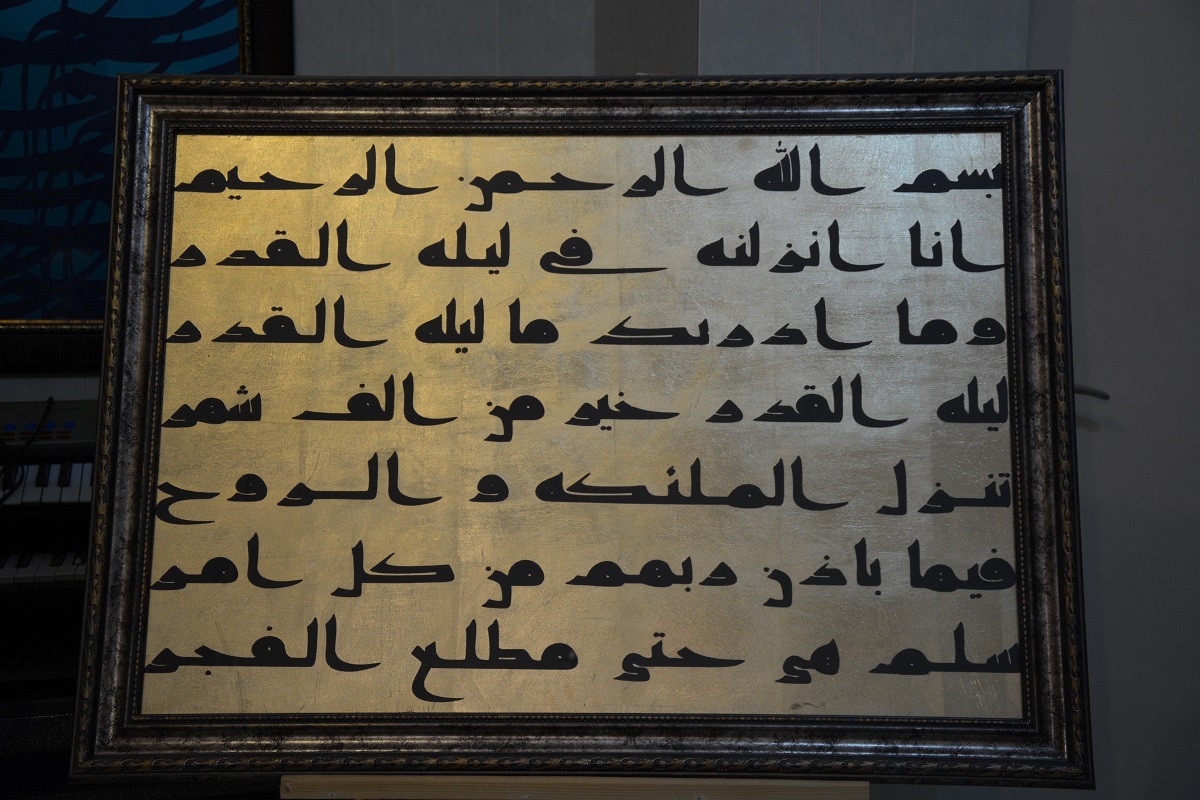 بسم الله الرحمن الرحيم
انا انزلنه في ليله القدر
وما ادريك ما ليله القدر
ليله القدر خير من الف شهر
تنزل الملئكه و الروح
فيها باذن ربهم من كل امر
سلم هي حتي مطلع الفجر